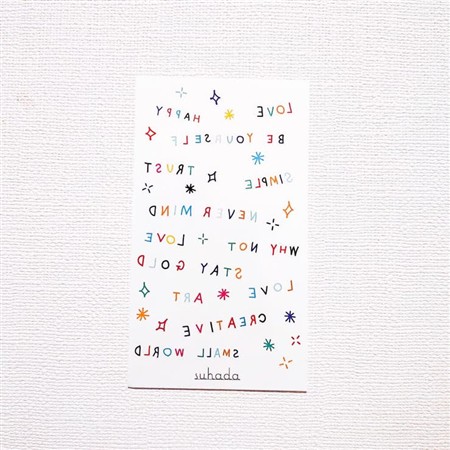 LOVE
HAPPY
BE YOURSELF
TRUST
SIMPLE
NEVER MIND
LOVE
WHY NOT
STAY GOLD
LOVE
ART
CREATIVE
SMALL WORLD
suhada